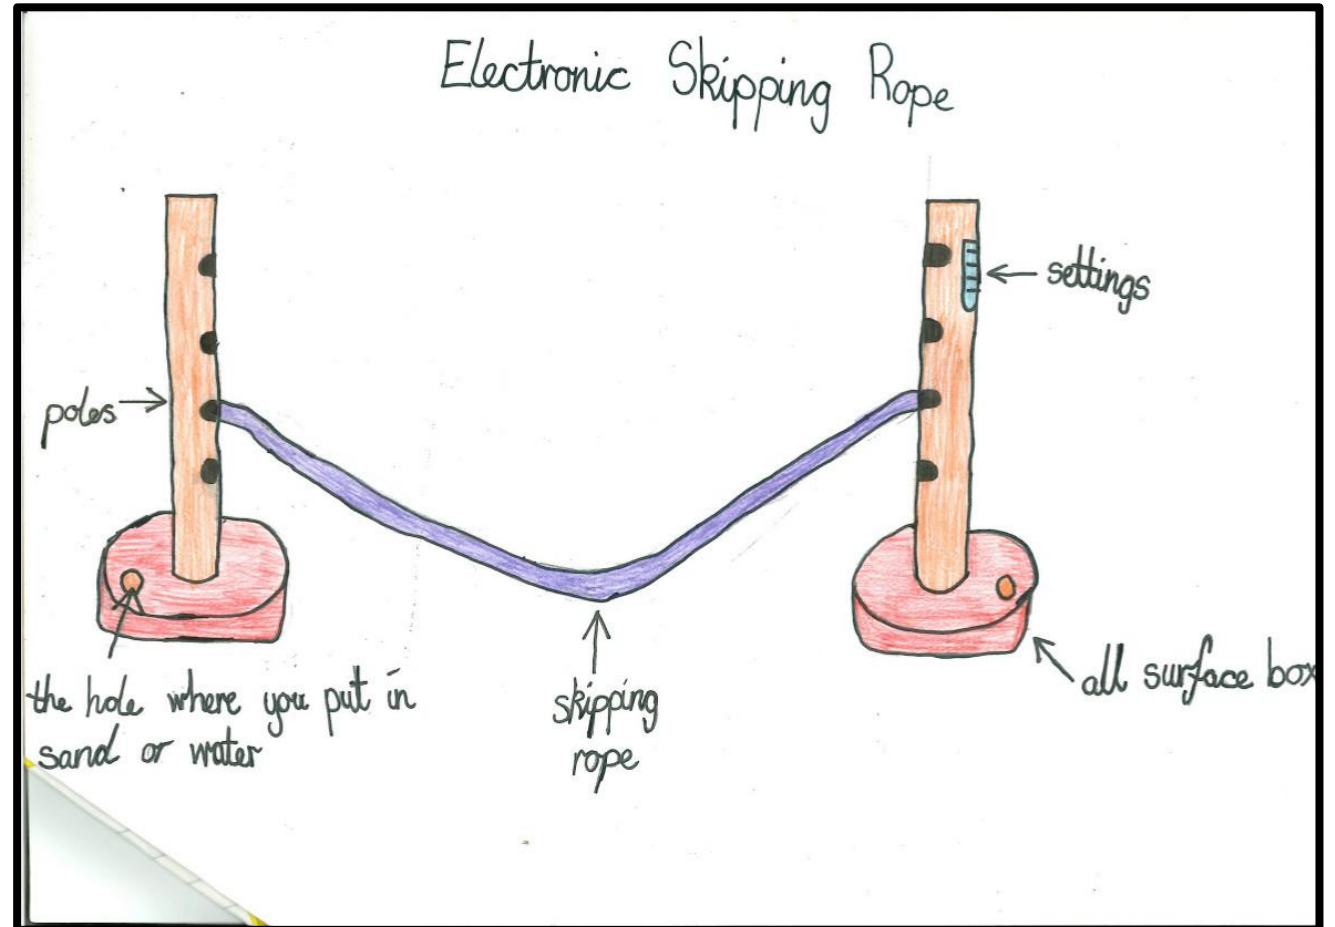 Electronic Skipping Rope
settings
poles
the hole where you put in
sand or water
skipping
rope
all surface box